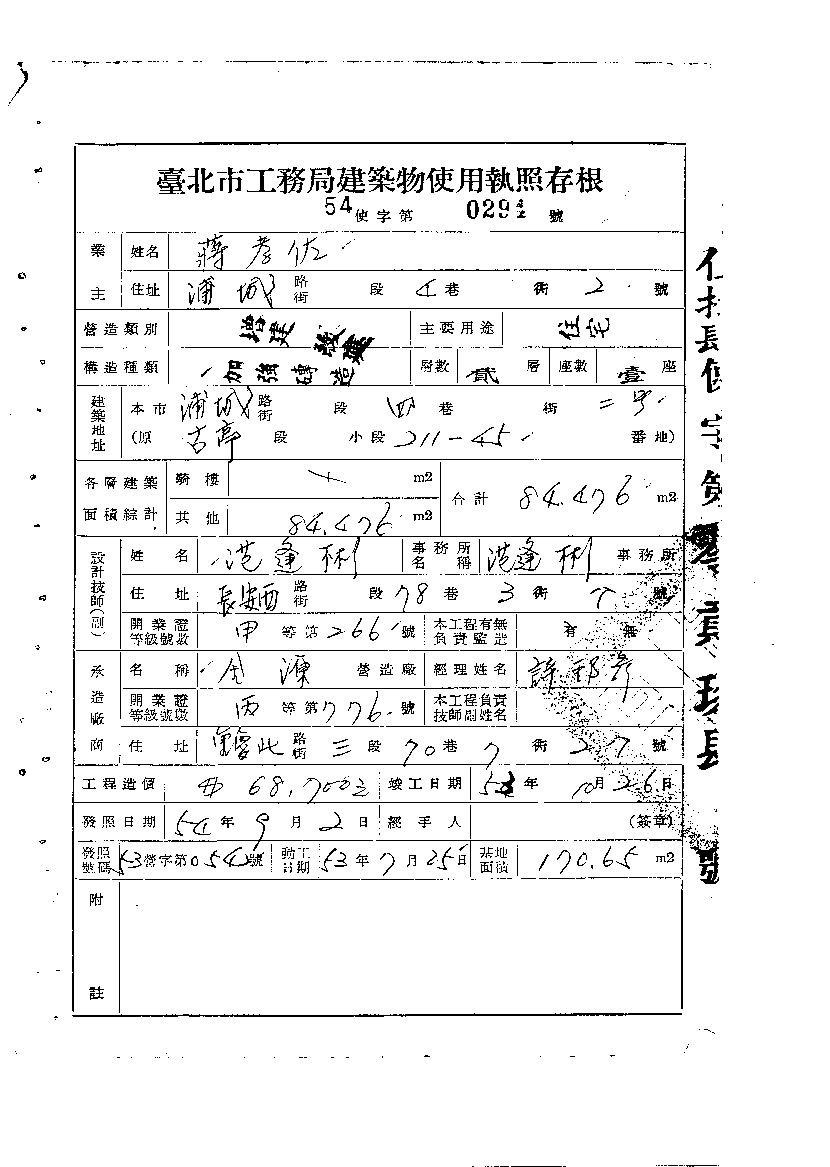 臺北市工務局建築物使用執照存根
54使字第 0294 號
業主 姓名 蔣孝佐
住址 浦城 路街 段 4 巷 街 2 號
營造類別 增建 發建 主要用途 住宅
構造種類 加強磚造 層數 貳 層 座數 壹 座
建築地址 本市 浦城 路街 段 四 巷 街 二号
(原 古亭 段 小段 211-45 番地)
各層建築面積綜計 騎樓 m2 合計 84.476 m2
其他 84.476 m2
設計技師(副) 姓名 逢彬 事務所名稱 逢彬 事務所
住址 長安西 路街 段 78 巷 3 街 號
開業證等級號數 甲 等第 266 號 本工程有無負責監造 有 無
承造廠商 名稱 金源 營造廠 經理姓名
開業證等級號數 丙 等第 776 號 本工程負責技師副姓名
住址 北 路街 三 段 70 巷 7 街 27 號
工程造價 68,700 竣工日期 年 10 月 26 日
發照日期 54 年 9 月 2 日 經手人 (簽章)
發照號碼 53 營字第 054 號 動工日期 53 年 7 月 25 日 基地面積 170.65 m2
附註